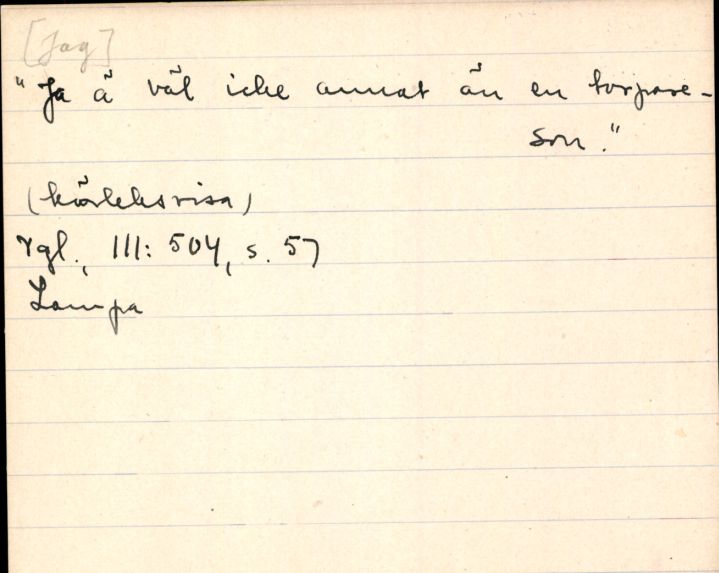 [Jag]
"Ja ä väl icke annat än en torpare-
son."
(kärleksvisa)
Vgl., III: 504, s. 57
Lampa